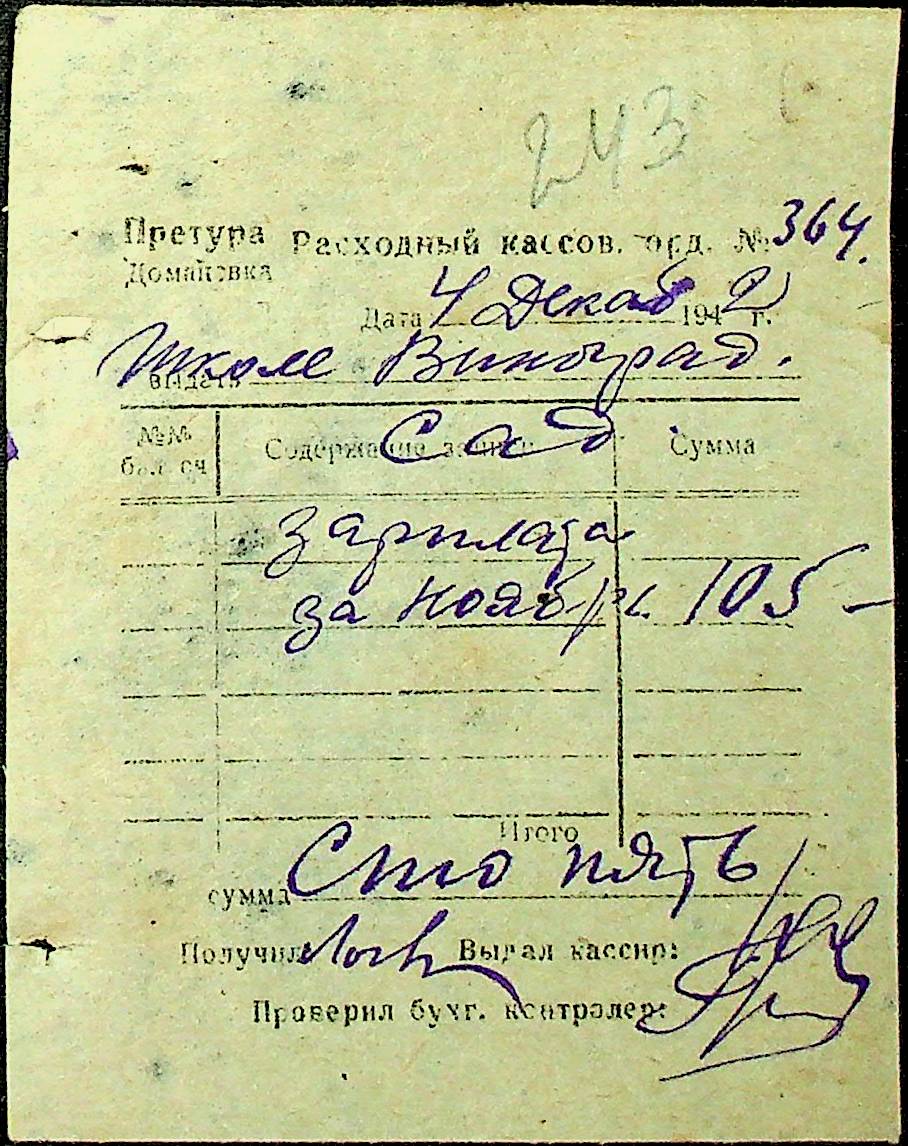 243
Претура Расходный кассов. орд. № 364.
Домановка
Дата 4 Декаб 1942 г.
выдать Школе Виноград.
Сад
№№ бал сч Содержание записи Сумма
зарплата
за ноябрь 105 –
Итого
сумма Сто пять
Получил Выдал кассир:
Проверил бухг. контролер: